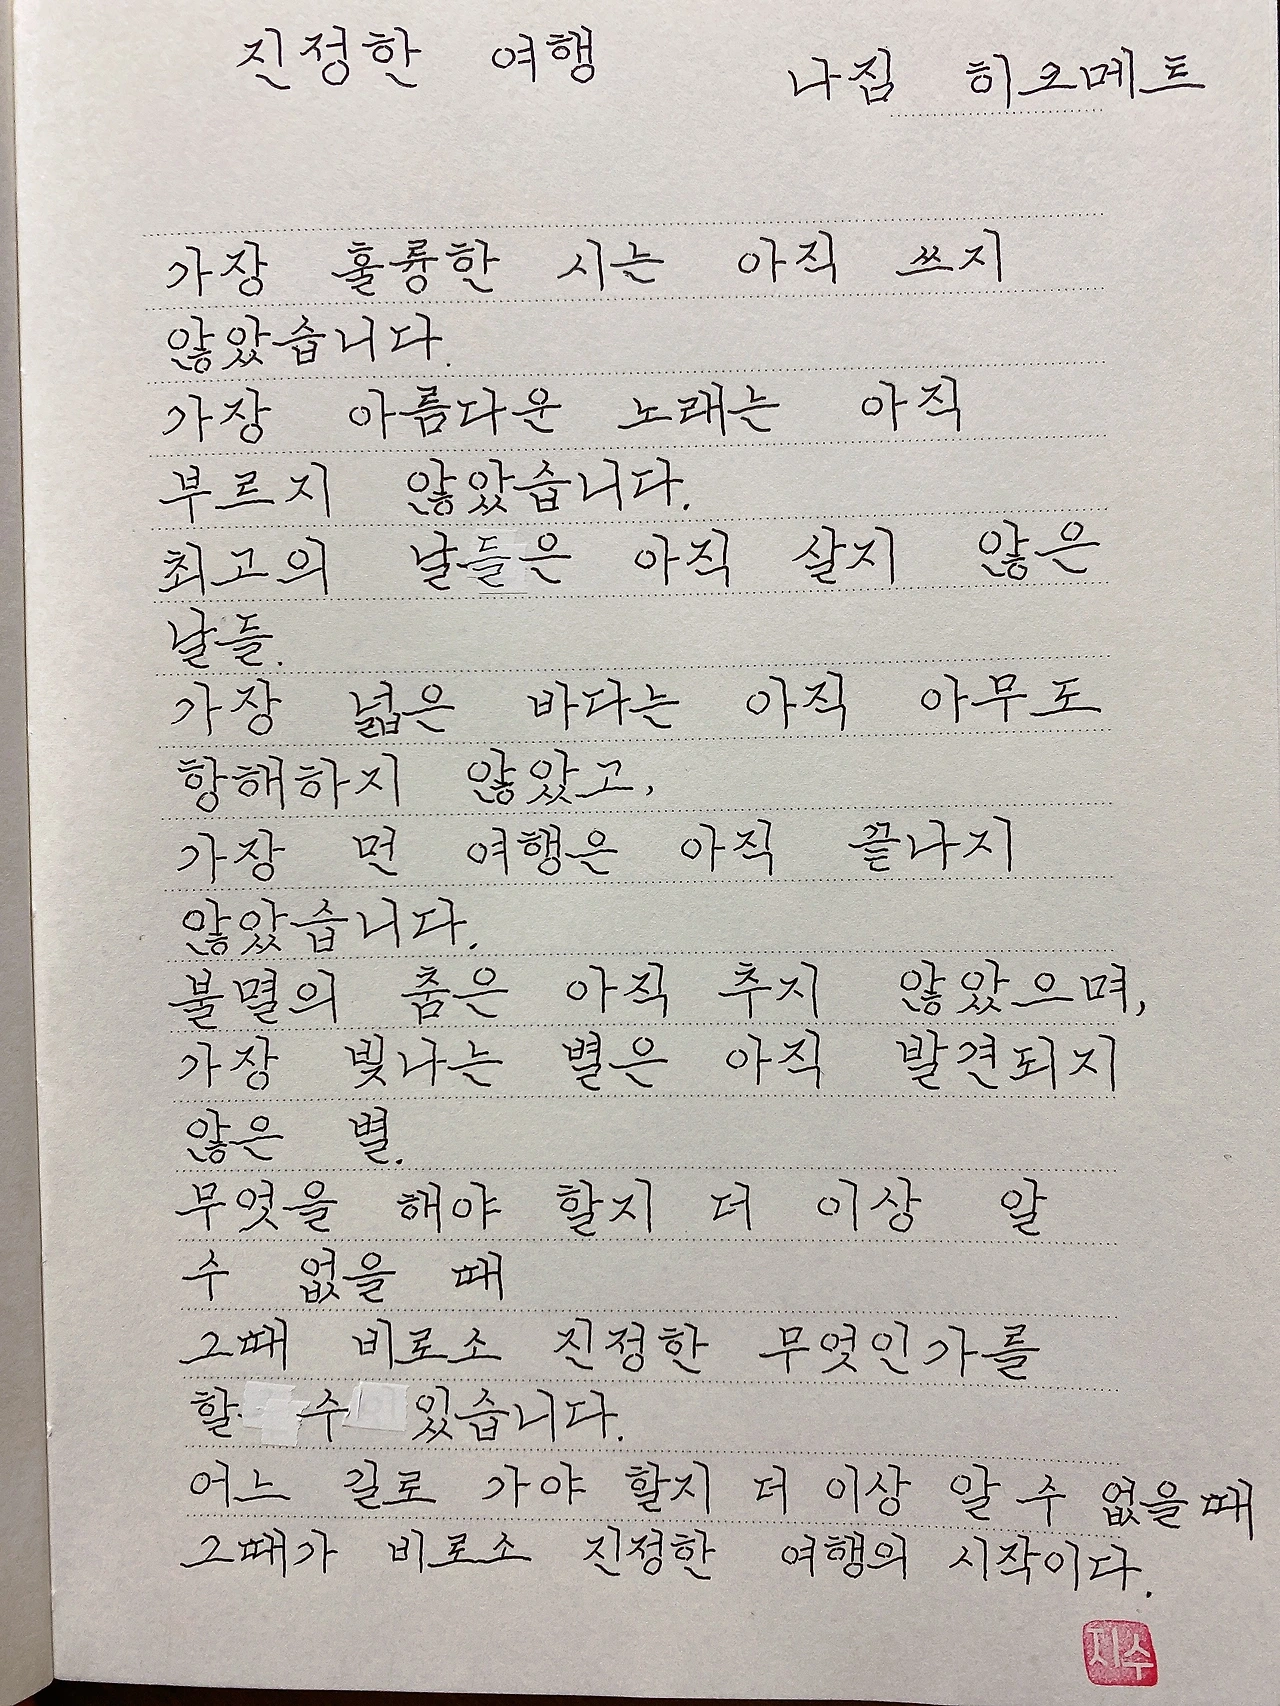 진정한 여행
나짐 히크메트
가장 훌륭한 시는 아직 쓰지
않았습니다.
가장 아름다운 노래는 아직
부르지 않았습니다.
최고의 날들은 아직 살지 않은
날들.
가장 넓은 바다는 아직 아무도
항해하지 않았고,
가장 먼 여행은 아직 끝나지
않았습니다.
불멸의 춤은 아직 추지 않았으며,
가장 빛나는 별은 아직 발견되지
않은 별.
무엇을 해야 할지 더 이상 알
수 없을 때
그때 비로소 진정한 무엇인가를
할 수 있습니다.
어느 길로 가야 할지 더 이상 알 수 없을 때
그때가 비로소 진정한 여행의 시작이다.
지수